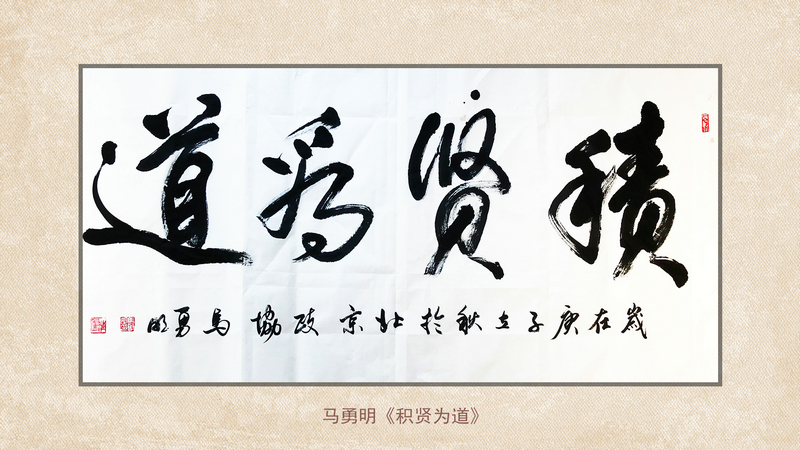 積贤為道
嵗在庚子立秋於北京政協馬勇明
马勇明《积贤为道》